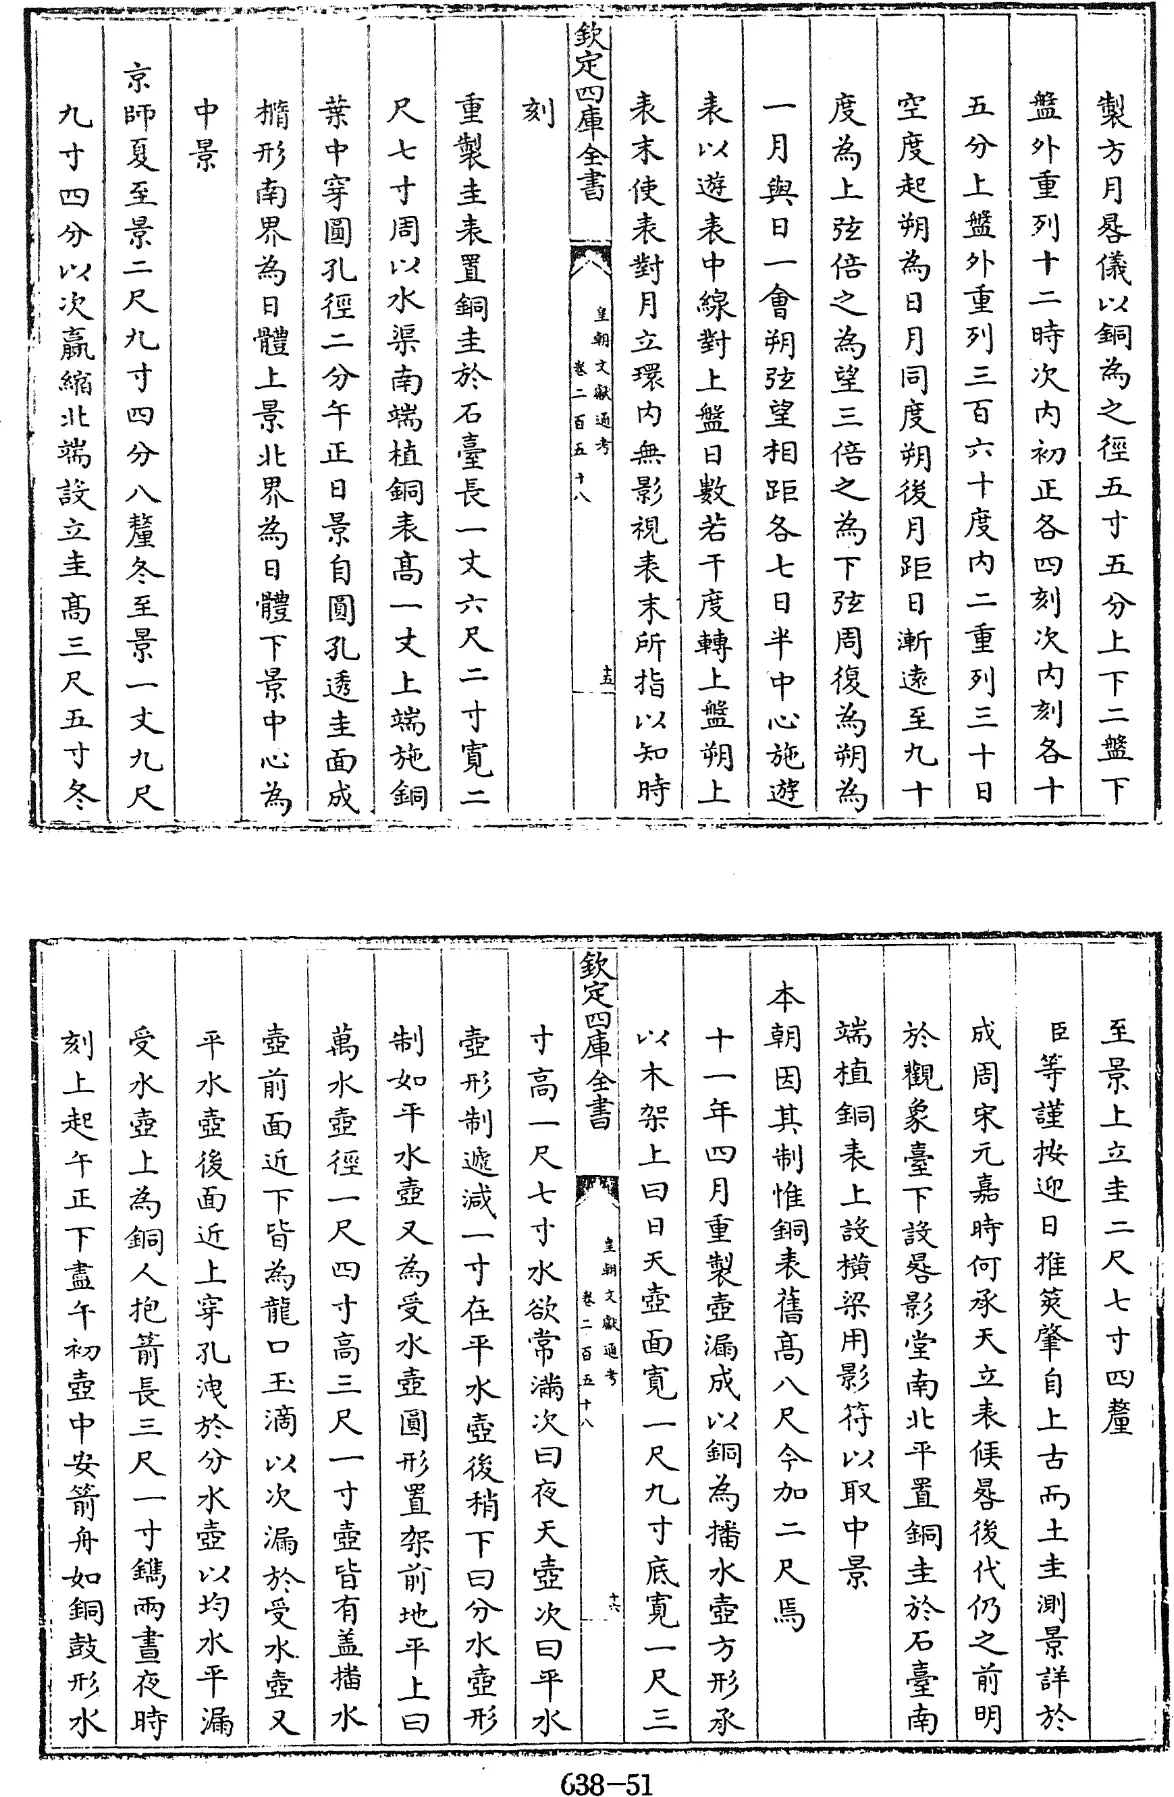 製方月晷儀以銅為之徑五寸五分上下二盤下
盤外重列十二時次内初正各四刻次内刻各十
五分上盤外重列三百六十度内二重列三十日
空度起朔為日月同度朔後月距日漸逺至九十
度為上弦倍之為望三倍之為下弦周復為朔為
一月與日一㑹朔弦望相距各七日半中心施遊
表以遊表中線對上盤日數若干度轉上盤朔上
表末使表對月立環内無影視表末所指以知時
欽定四庫全書
皇朝文獻通考
卷二百五十八
十五
刻
重製圭表置銅圭於石臺長一丈六尺二寸寛二
尺七寸周以水渠南端植銅表髙一丈上端施銅
葉中穿圓孔徑二分午正日景自圓孔透圭面成
橢形南界為日體上景北界為日體下景中心為
中景
京師夏至景二尺九寸四分八釐冬至景一丈九尺
九寸四分以次贏縮北端設立圭髙三尺五寸冬
至景上立圭二尺七寸四釐
臣等謹按迎日推筴肇自上古而土圭測景詳於
成周宋元嘉時何承天立表候晷後代仍之前明
於觀象臺下設晷影堂南北平置銅圭於石臺南
端植銅表上設横梁用影符以取中景
本朝因其制惟銅表舊髙八尺今加二尺焉
十一年四月重製壺漏成以銅為播水壺方形承
以木架上曰日天壺面寛一尺九寸底寛一尺三
欽定四庫全書
皇朝文獻通考
卷二百五十八
十六
寸高一尺七寸水欲常滿次曰夜天壺次曰平水
壺形制遞減一寸在平水壺後稍下曰分水壺形
制如平水壺又為受水壺圓形置架前地平上曰
萬水壺徑一尺四寸高三尺一寸壺皆有盖播水
壺前面近下皆為龍口玉滴以次漏於受水壺又
平水壺後面近上穿孔洩於分水壺以均水平漏
受水壺上為銅人抱箭長三尺一寸鐫兩晝夜時
刻上起午正下盡午初壺中安箭舟如銅鼓形水
638-51